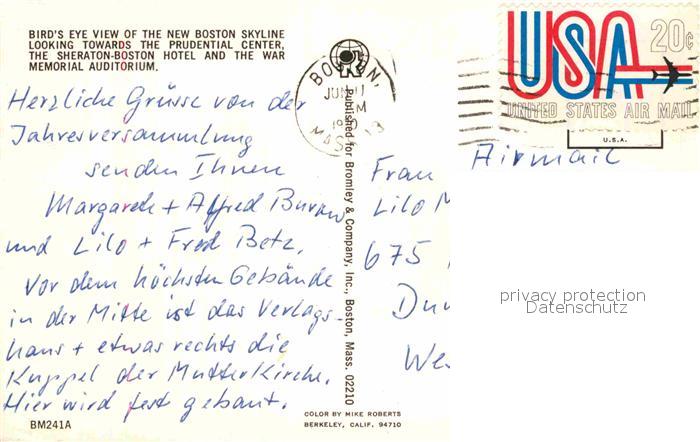 BIRD'S EYE VIEW OF THE NEW BOSTON SKYLINE
LOOKING TOWARDS THE PRUDENTIAL CENTER,
THE SHERATON-BOSTON HOTEL AND THE WAR
MEMORIAL AUDITORIUM.
Herzliche Grüsse von der
Jahresversammlung
senden Ihnen
Margareth + Alfred
und Lilo + Fred Betz.
Vor dem höchsten Gebäude
in der Mitte ist das Verlags-
haus + etwas rechts die
Kuppel der Mutterkirche.
Hier wird fest gebaut.
BM241A
Published for Bromley & Company, Inc., Boston, Mass. 02210
COLOR BY MIKE ROBERTS
BERKELEY, CALIF. 94710
BOSTON,
JUN
MASS
USA 20c
UNITED STATES AIR MAIL
U.S.A.
Airmail
Frau
Lilo M
675
privacy protection
Datenschutz